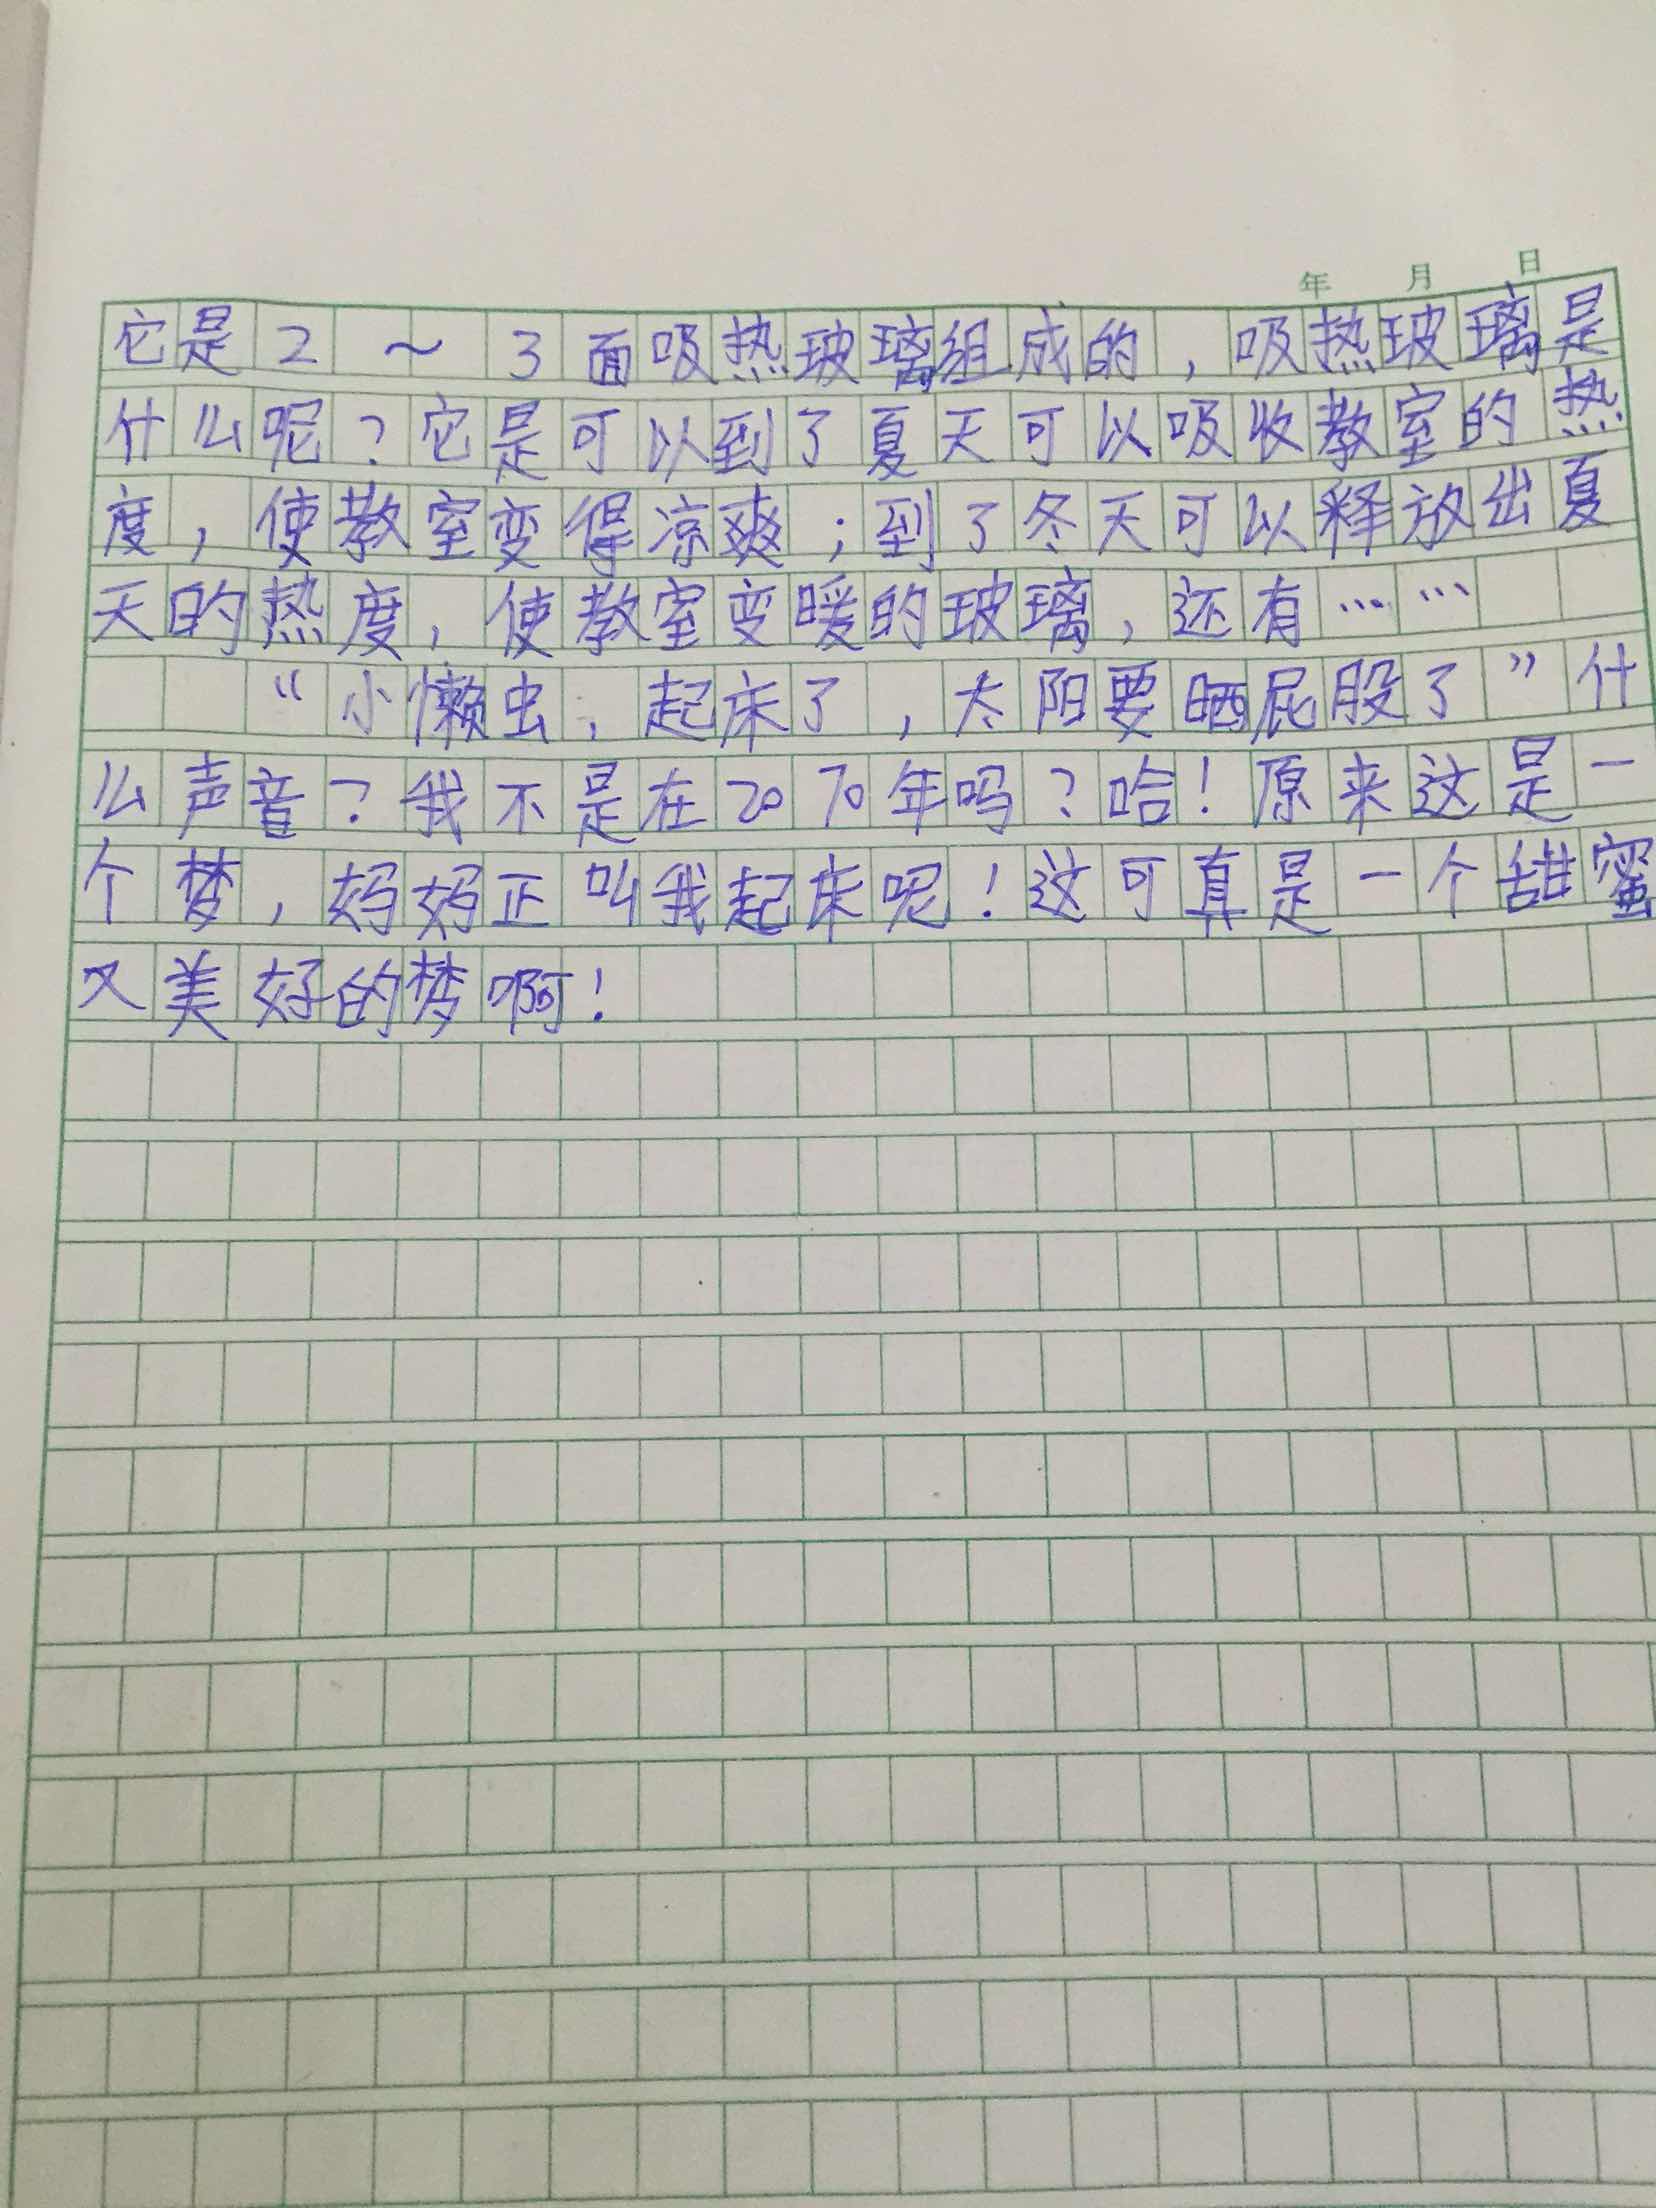 年 月 日
它是2～3面吸热玻璃组成的，吸热玻璃是
什么呢？它是可以到了夏天可以吸收教室的热
度，使教室变得凉爽；到了冬天可以释放出夏
天的热度，使教室变暖的玻璃，还有……
“小懒虫，起床了，太阳要晒屁股了”什
么声音？我不是在2070年吗？哈！原来这是一
个梦，妈妈正叫我起床呢！这可真是一个甜蜜
又美好的梦啊！